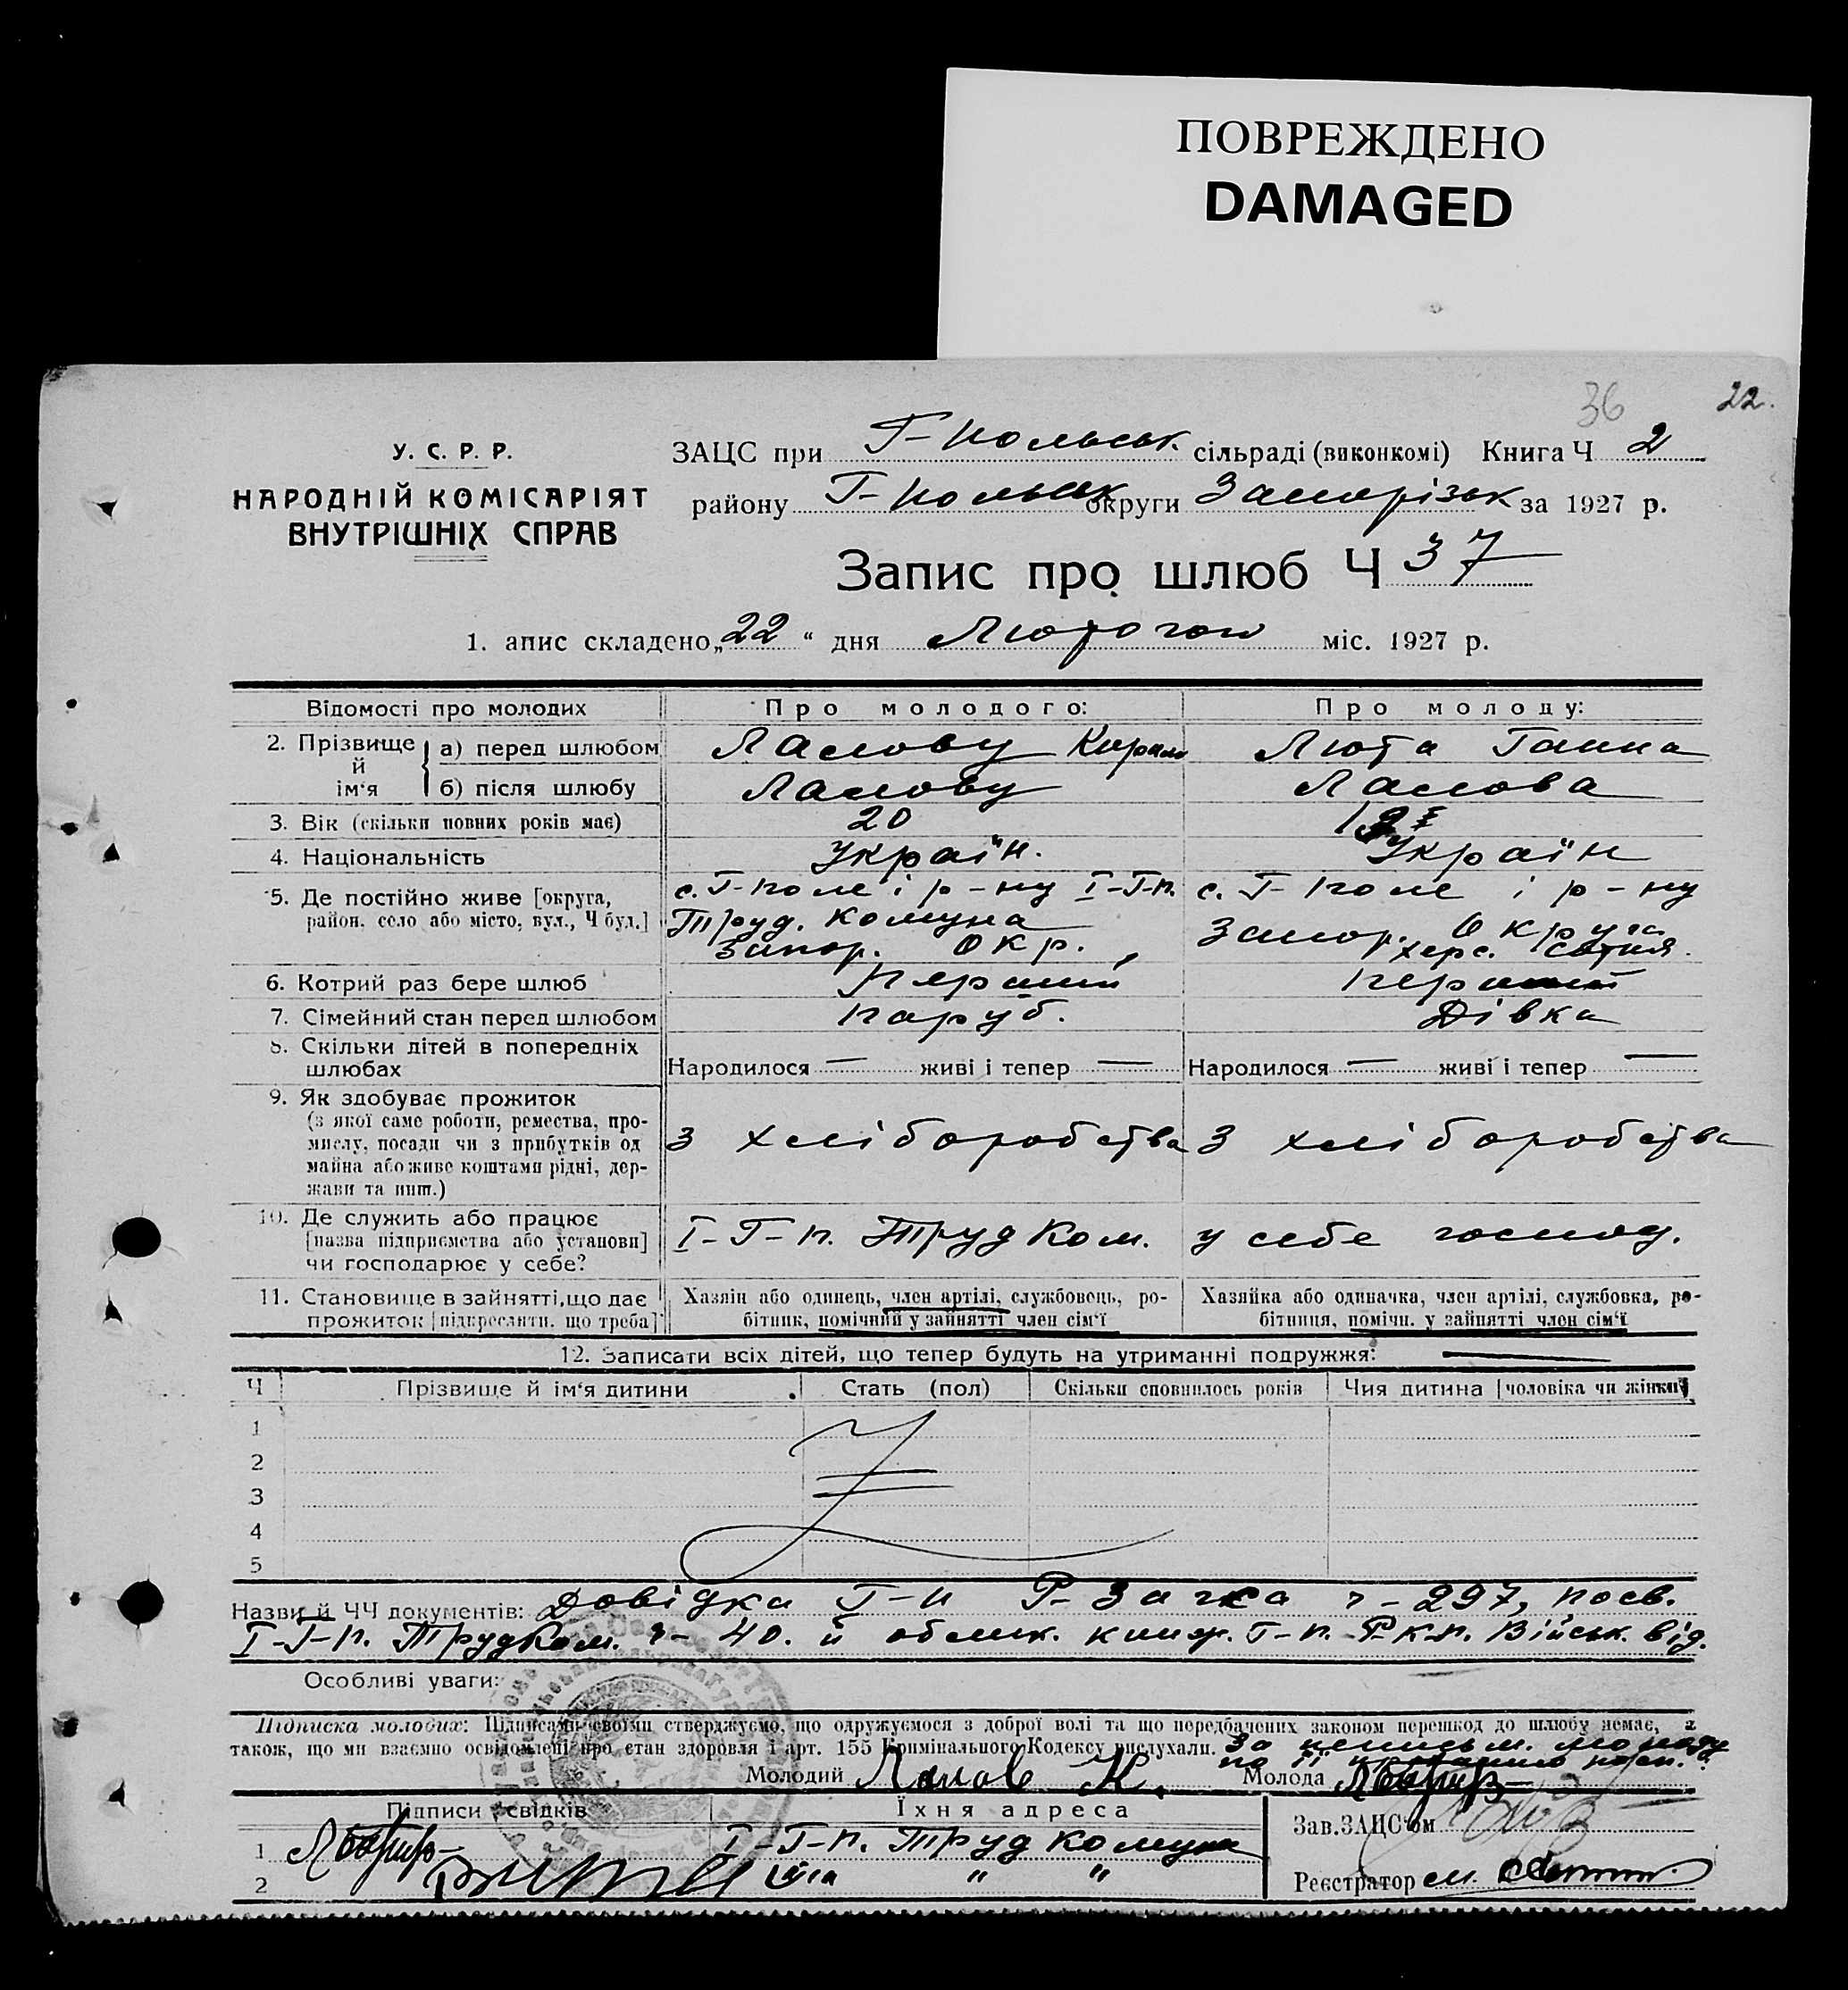 ПОВРЕЖДЕНО
DAMAGED
36 22.
У. С. Р. Р.
НАРОДНІЙ КОМІСАРІЯТ
ВНУТРІШНІХ СПРАВ
ЗАЦС при Г-Польськ. сільраді (виконкомі) Книга Ч 2
району Г-Польськ округи Запорізьк за 1927 р.
Запис про шлюб Ч 37
1. апис складено „22“ дня Лютого міс. 1927 р.
Відомості про молодих Про молодого: Про молоду:
2. Прізвище й ім‘я
а) перед шлюбом Кирило Люта Ганна
б) після шлюбу
3. Вік (скільки повних років має) 20
4. Національність Україн. Україн
5. Де постійно живе [округа, район, село або місто, вул., Ч буд.]
с. Г-поле і р-ну І-Г-п. Труд. Комуна Запор. Окр.
с. Г-поле і р-ну Запор. Округа херс. сотня.
6. Котрий раз бере шлюб перший перший
7. Сімейний стан перед шлюбом паруб. Дівка
8. Скільки дітей в попередніх шлюбах
Народилося — живі і тепер — Народилося — живі і тепер —
9. Як здобуває прожиток
(з якої саме роботи, ремества, про-
мислу, посади чи з прибутків од
майна або живе коштами рідні, дер-
жави та инш.)
З хліборобства З хліборобства
10. Де служить або працює
[назва підприємства або установи]
чи господарює у себе?
І-Г-п. Труд Ком. у себе господ.
11. Становище в зайнятті, що дає
прожиток [підкреслити, що треба]
Хазяін або одинець, член артілі, службовець, ро-
бітник, помічний у зайнятті член сім‘ї
Хазяйка або одиначка, член артілі, службовка, ро-
бітниця, помічн. у зайнятті член сім‘ї
12. Записати всіх дітей, що тепер будуть на утриманні подружжя: —
Ч Прізвище й ім‘я дитини Стать (пол) Скільки сповнилось років Чия дитина [чоловіка чи жінки]
1
2
3
4
5
Назви й ЧЧ документів: Довідка Г-П Р-Загса ч-297, посв.
І-Г-п. ТрудКом. ч-40. й облик. книж. Г-п. Р.К.п. Військ. від.
Особливі уваги:
Підписка молодих: Підписами своїми стверджуємо, що одружуємося з доброї волі та що передбачених законом перешкод до шлюбу немає, а
також, що ми взаємно освідомлені про стан здоровля і арт. 155 Кримінального Кодексу вислухали.
Молодий К. Молода
Підписи свідків Їхня адреса
1 І-Г-п. Труд Комуна
2 " "
Зав. ЗАЦС‘ом
Реєстратор